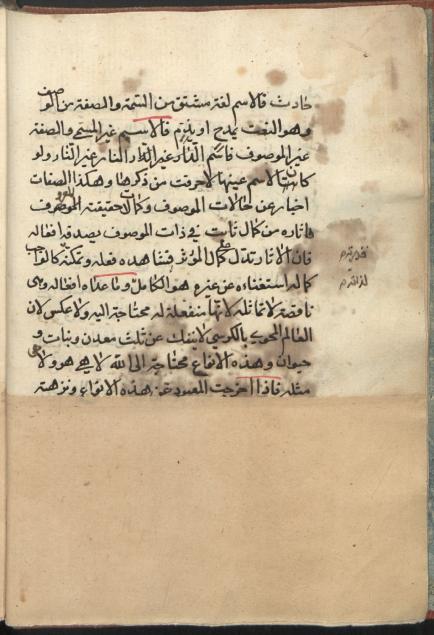 حادث فالاسم لغة مشتق من السمة والصفة من الوصف
وهو النعت بمدح او بذم فالاسم غير المسمى والصفة
غير الموصوف فاسم النار غير النار غير النار ولو
كانت الاسم عينها لاحرقت من ذكرها وهكذا الصفات
اخبار عن حالات الموصوف وكمال حقيقة الموصوف
واثاره من كمال ثابت في ذات الموصوف يصدقه افعاله
فان الاثار تدل على كمال المؤثر فينا هذه فعله وتمكنه
كماله استغناءه عن غيره هو الكامل وما عداه افعاله وهي
ناقصة لا تماثله لانها منفعلة له محتاجة اليه ولا عكس لان
العالم المحوي بالكرسي لا ينفك عن ثلث معدن ونبات و
حيوان وهذه الانواع محتاجة الى الله لا هي هو ولا هي
مثله فاذا اخرجت المعبود عن هذه الانواع ونزهته